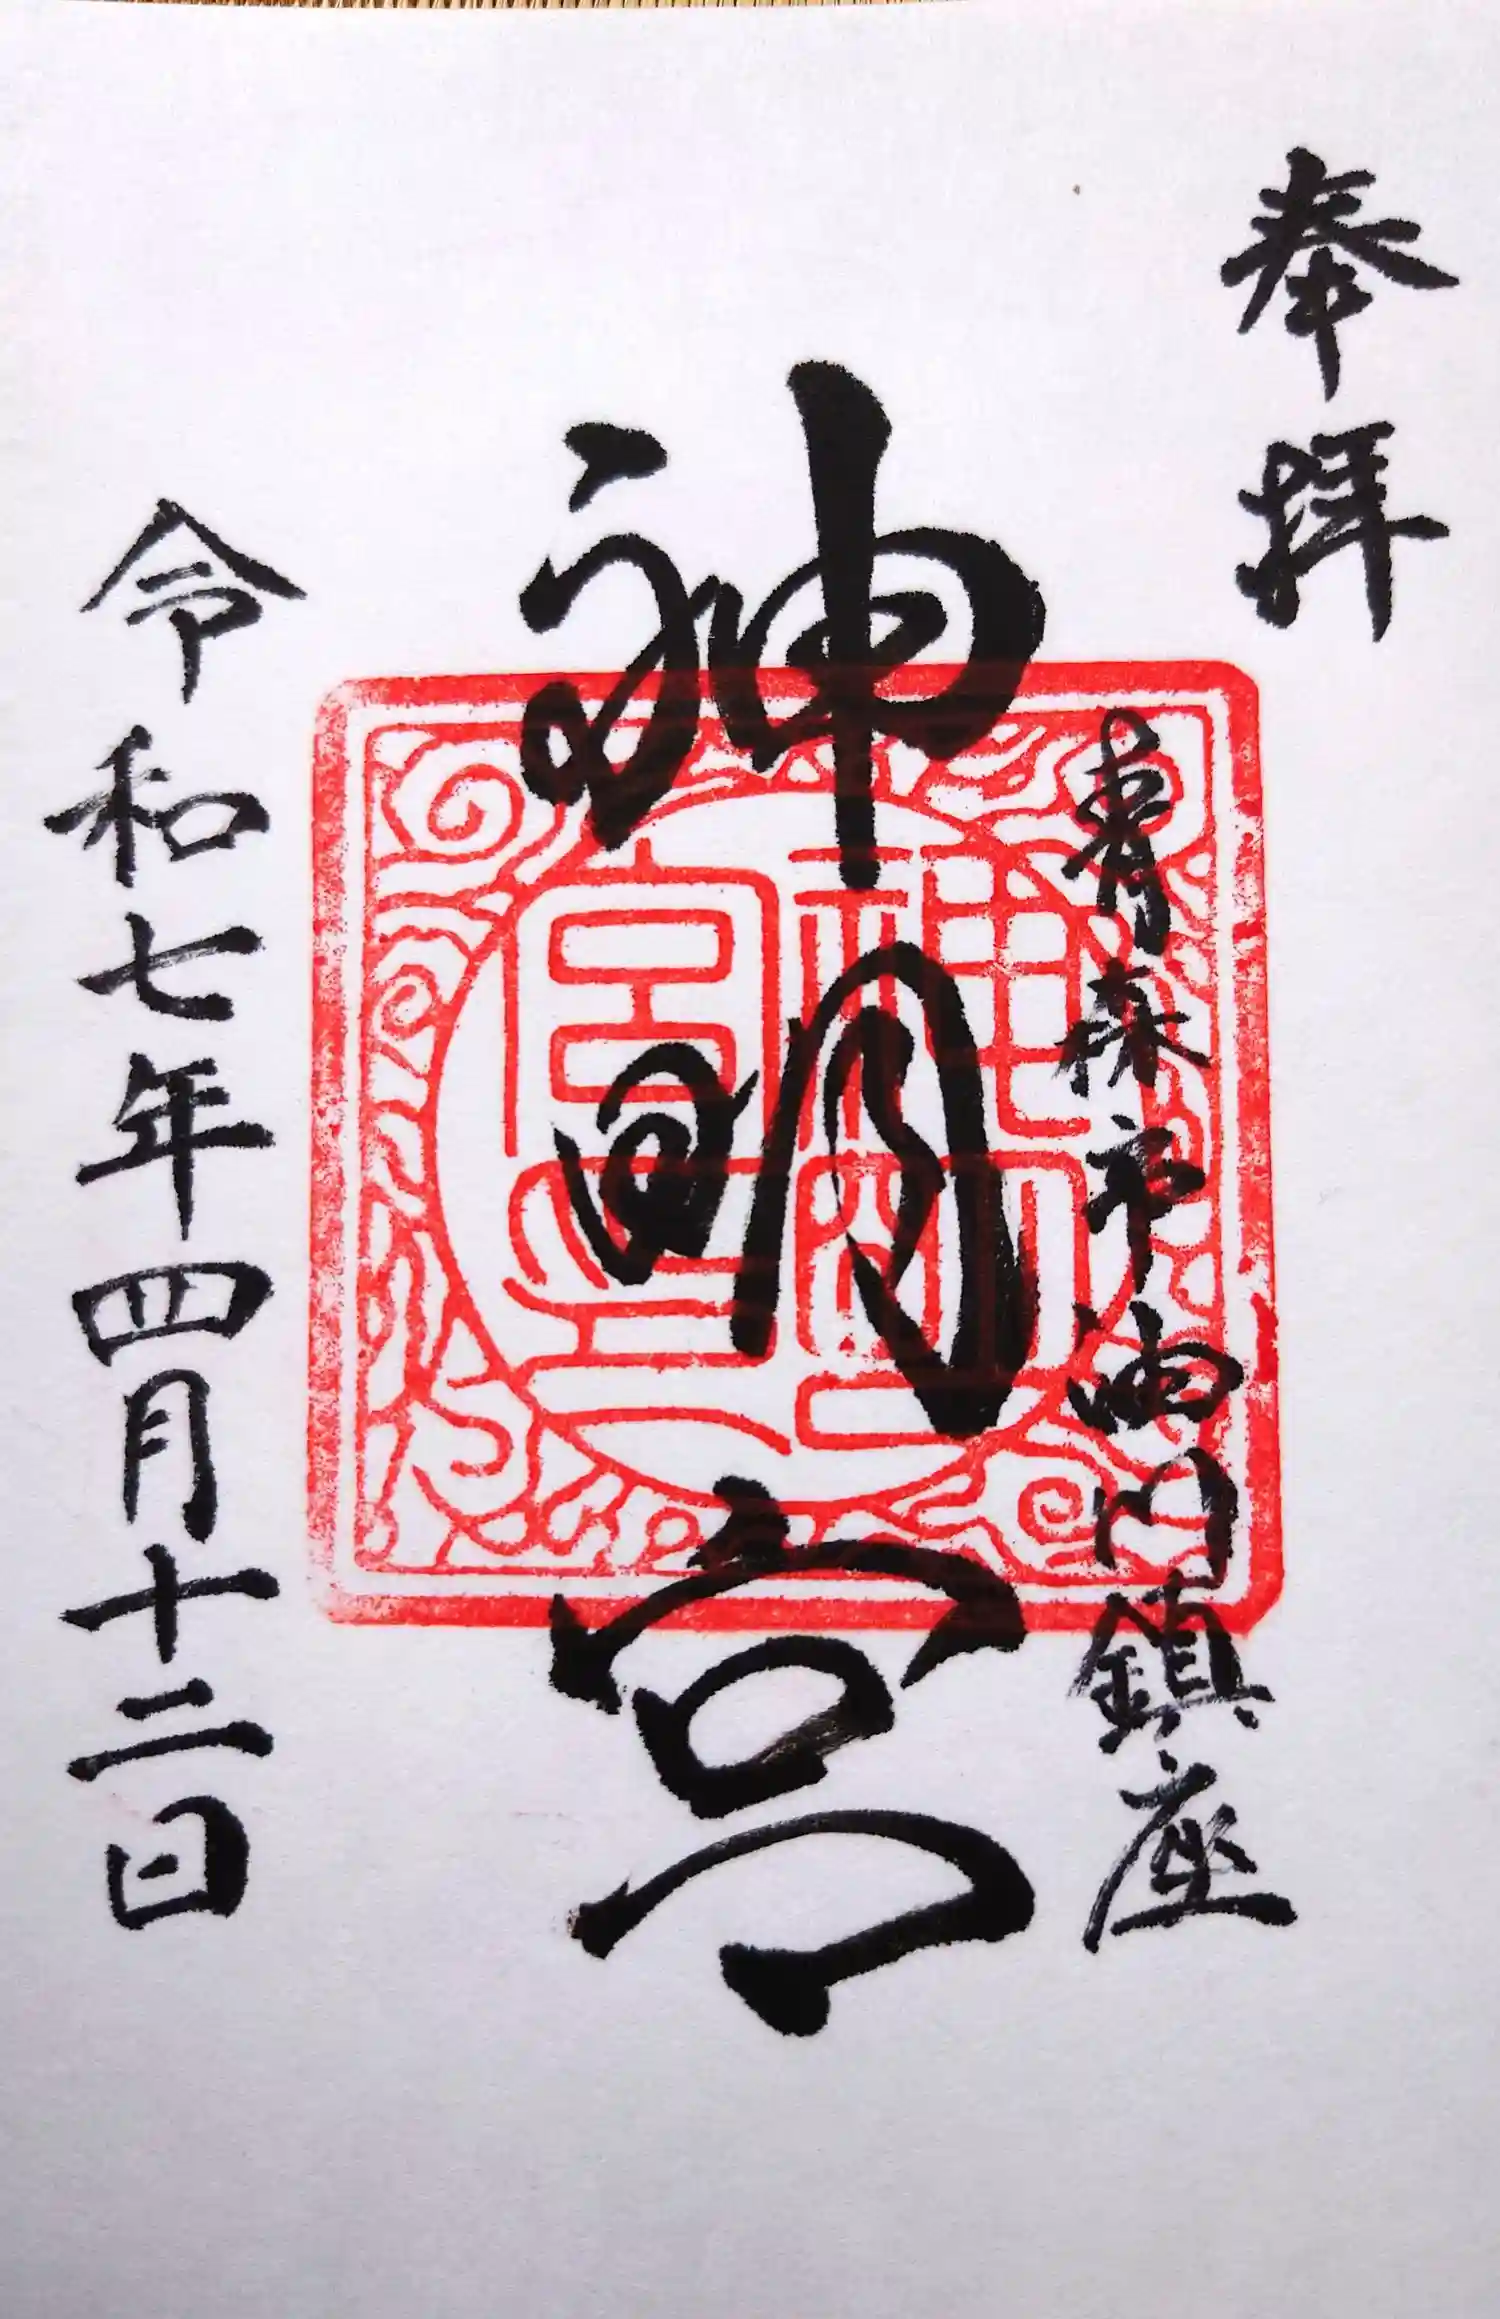 奉拝
青森市油川鎮座
神明宮
神明宮之印
令和七年四月十二日